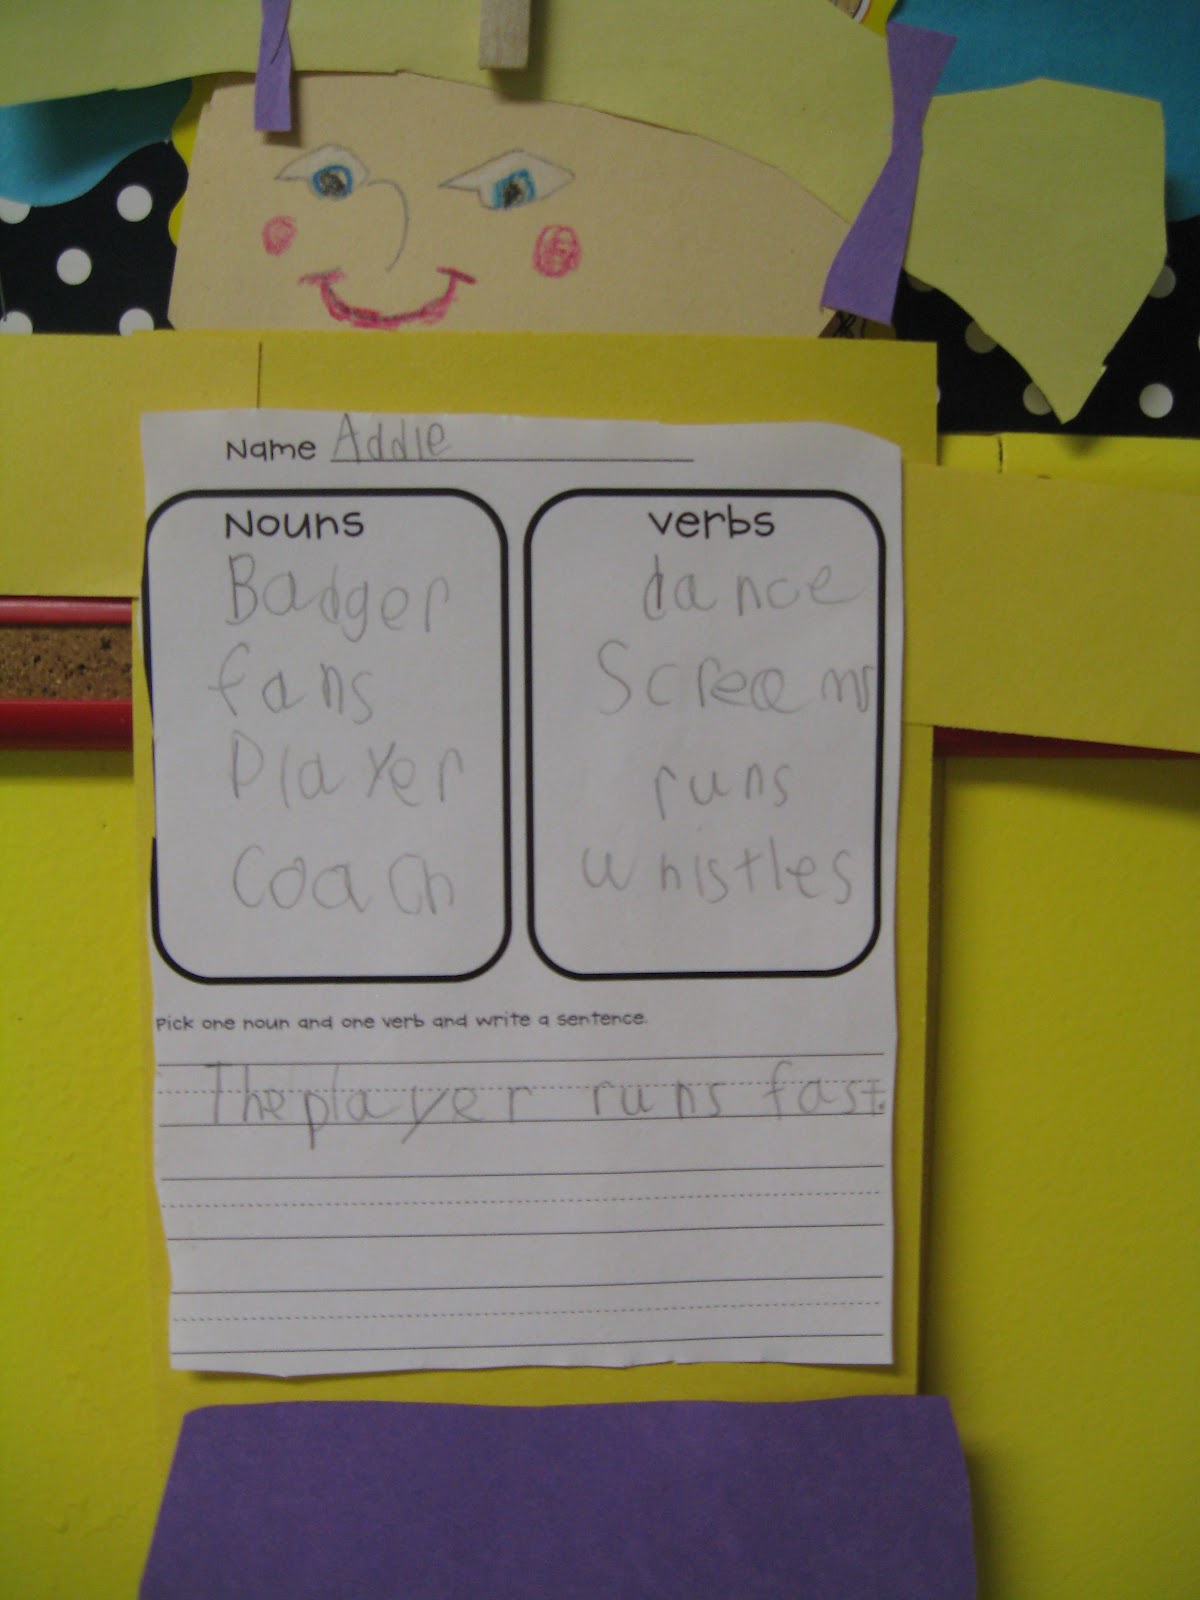 Name Addie
Nouns
Badger
fans
Player
Coach
verbs
dance
Screams
runs
whistles
Pick one noun and one verb and write a sentence.
The player runs fast.